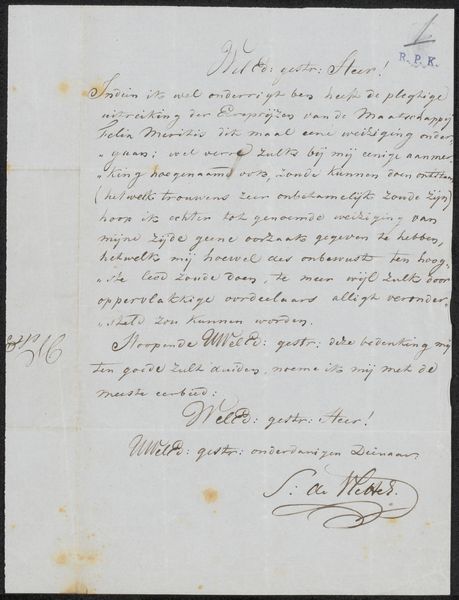 1
R.P.K.
WelEd: gestr: Heer!
Indien ik wel onderrigt ben heeft de plegtige
uitreiking der Eereprijzen van de Maatschappij
Felix Meritis dit maal eene weiziging onder„
„gaan; wel verre zulks bij mij eenige aanmer„
„king hoegenaamd ook, zoude kunnen doen ontstaan
(hetwelk trouwens zeer onbetamelijk zoude zijn)
hoop ik echter tot genoemde weiziging van
mijne zijde geene oorzaak gegeven te hebben,
hetwelk mij hoewel des onbewust ten hoog„
„ste leed zoude doen, te meer wijl zulk door
oppervlakkige oordeelaars alligt veronder„
„steld zou kunnen worden.
Hoopende UWelEd: gestr: deze bedenking mij
ten goede zult duiden, noeme ik mij met de
meeste eerbied:
WelEd: gestr: Heer!
UWelEd: gestr: onderdanigen Dienaar
S: de